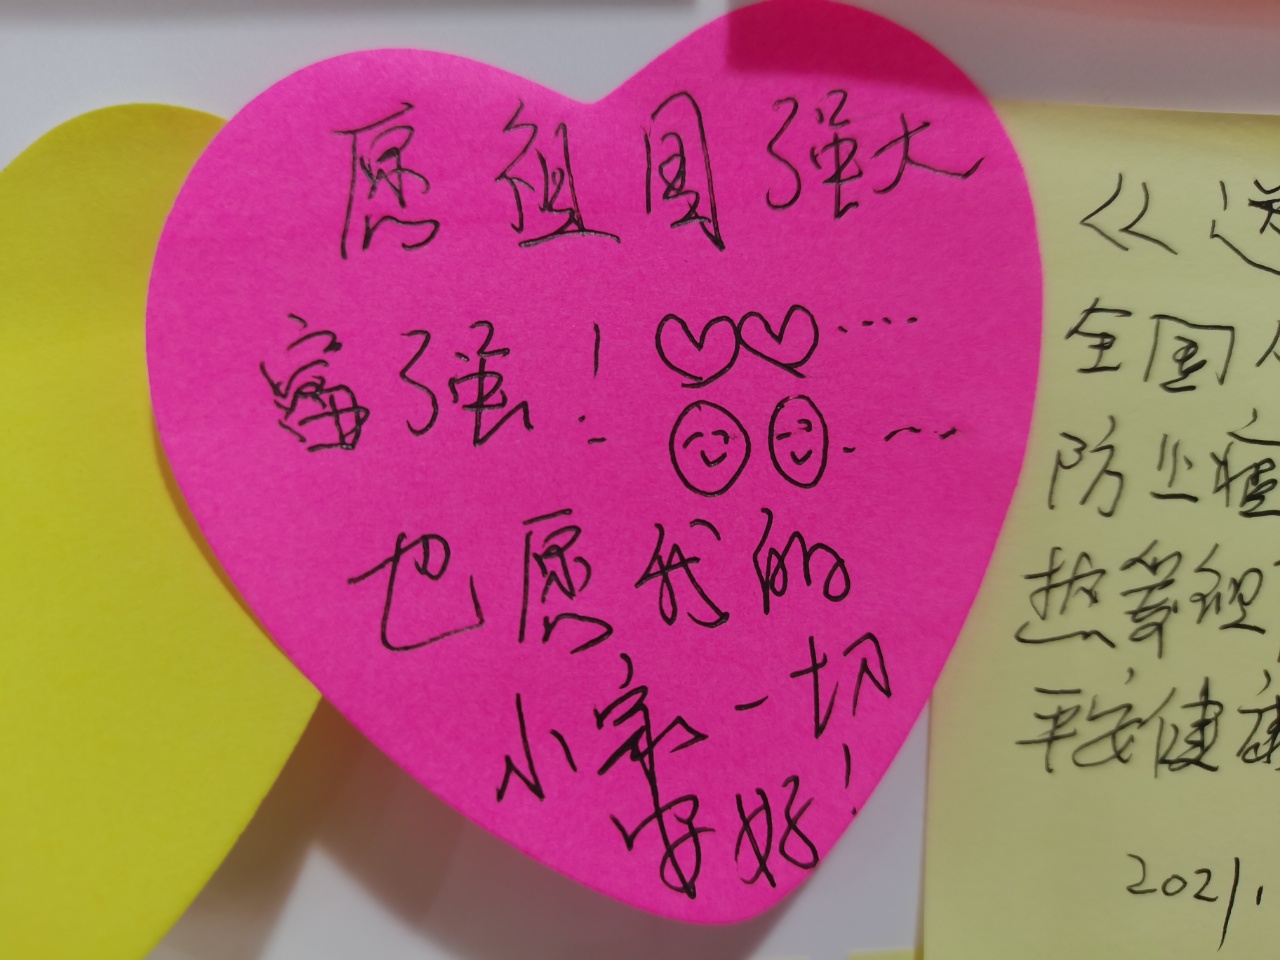 愿祖国强大
富强!
也愿我的
小家一切
安好!
《送
全国人
防止瘟
热等现
平安健康
2021.